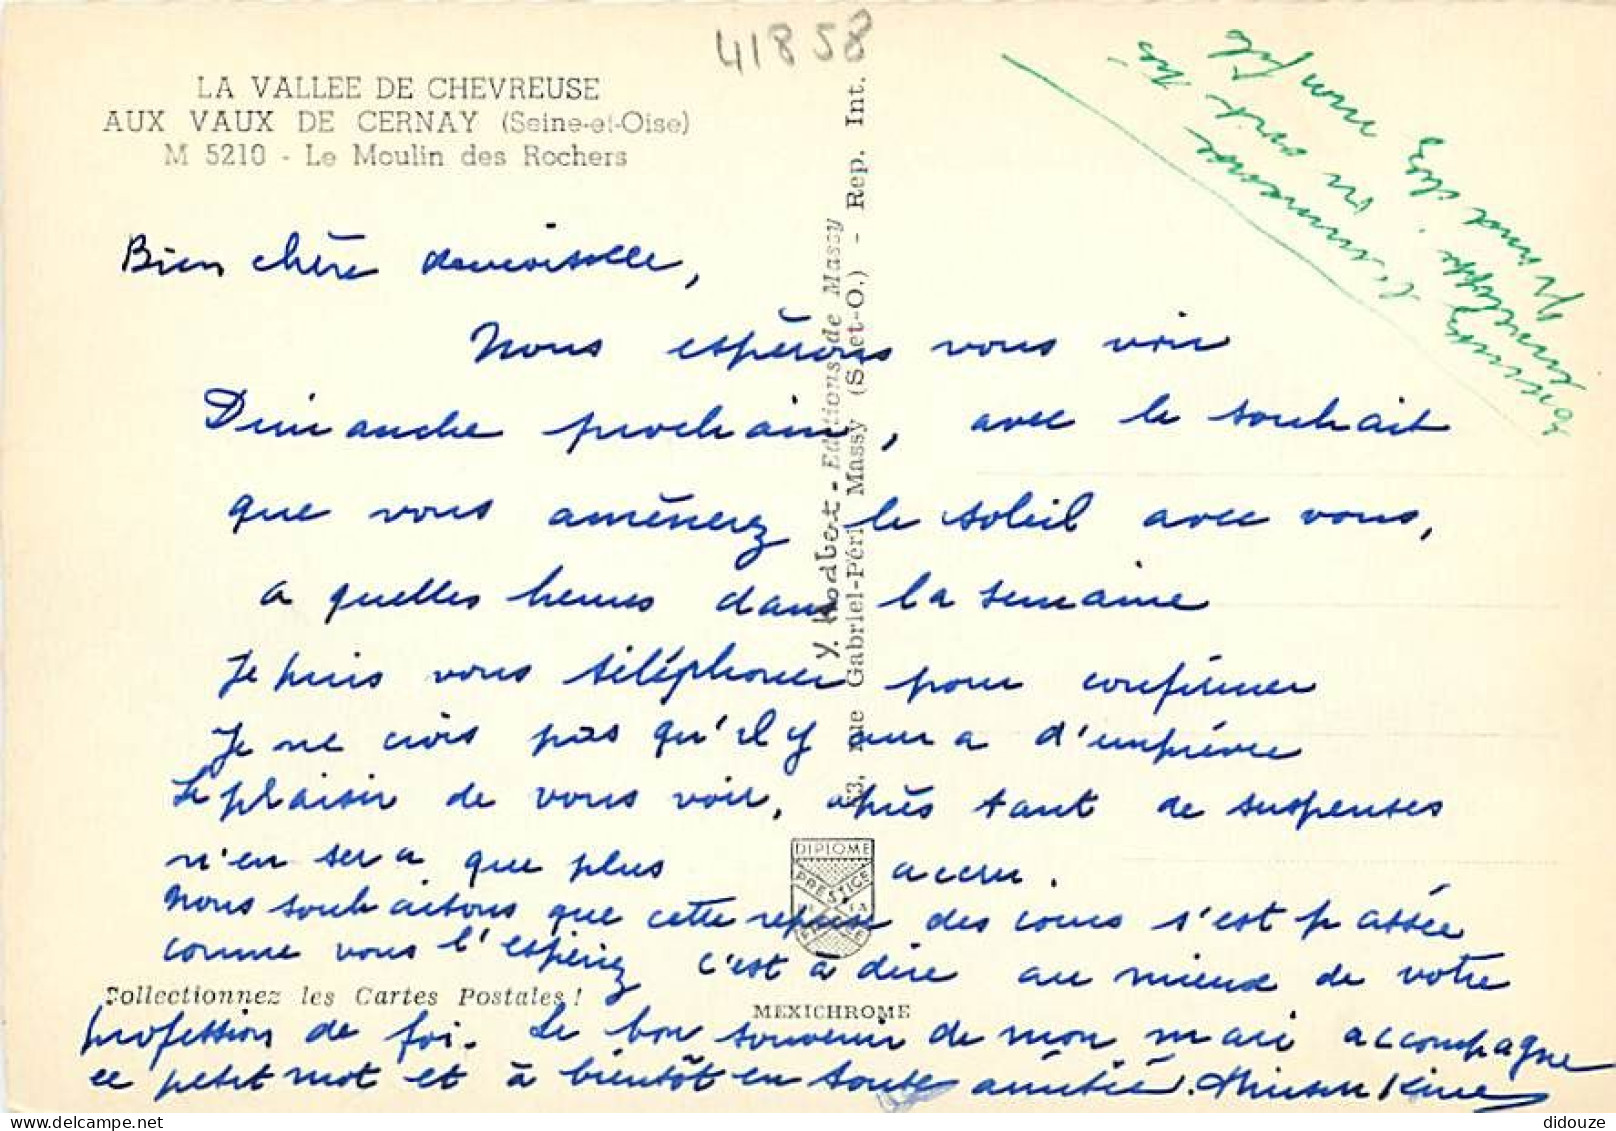 41858
LA VALLEE DE CHEVREUSE
AUX VAUX DE CERNAY (Seine-et-Oise)
M 5210 - Le Moulin des Rochers
Bien chère demoiselle,
Nous espérons vous voir
Dimanche prochain, avec le souhait
que vous amènerez le soleil avec vous,
a quelles heures dans la semaine
Je puis vous téléphoner pour confirmer
Je ne crois pas qu'il y aura d'imprévu
Le plaisir de vous voir, après tant de suspenses
n'en sera que plus accru.
Nous souhaitons que cette reprise des cours s'est passée
comme vous l'espériez c'est à dire au mieux de votre
profession de foi. Le bon souvenir de mon mari accompagne
ce petit mot et à bientôt en toute amitié.
Collectionnez les Cartes Postales !
Editions de Massy
53, rue Gabriel-Péri Massy (S.-et-O.) - Rep. Int.
DIPLOME
PRESTIGE
MEXICHROME
didouze